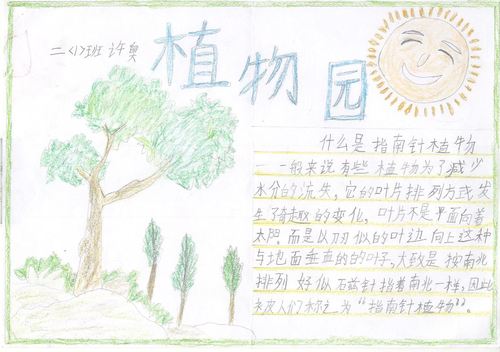 二〈1〉班 许奥
植物园
什么是指南针植物
一一般来说有些植物为了减少
水分的流失，它的叶片排列方式发
生了有趣的变化，叶片不是平面向着
太阳，而是以刀似的叶边向上这种
与地面垂直的的叶子，大致是按南北
排列好似石兹针指着南北一样，因此
被人们称之为“指南针植物”。